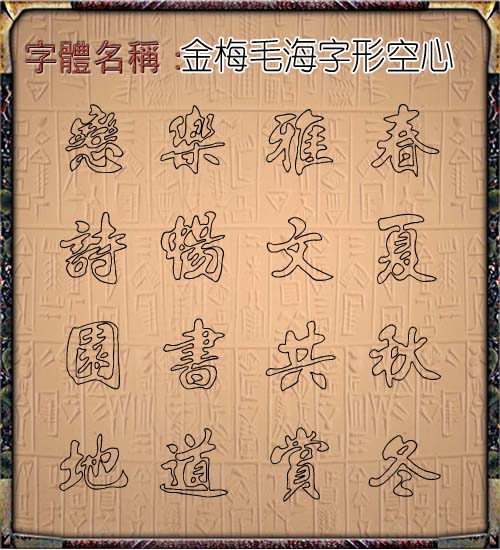 字體名稱 :金梅毛海字形空心
春夏秋冬
雅文共賞
樂暢書道
戀詩園地